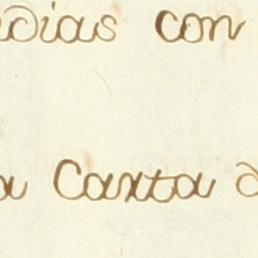 dias con
a Carta d